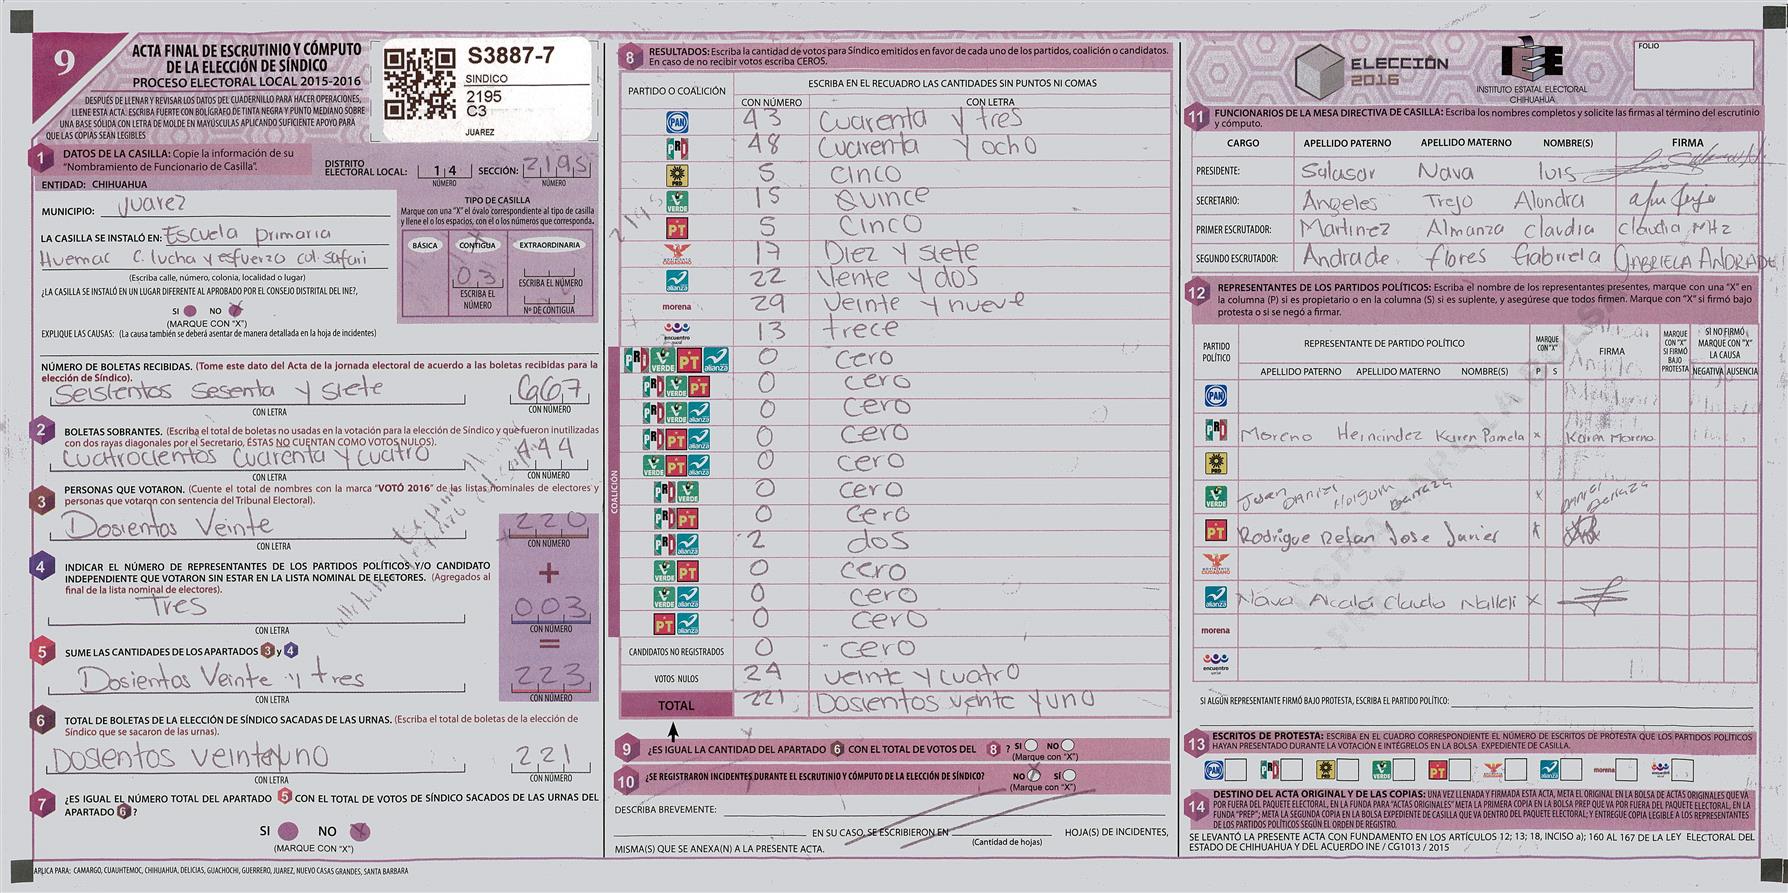 9
ACTA FINAL DE ESCRUTINIO Y CÓMPUTO
DE LA ELECCIÓN DE SÍNDICO
PROCESO ELECTORAL LOCAL 2015-2016
DESPUÉS DE LLENAR Y REVISAR LOS DATOS DEL CUADERNILLO PARA HACER OPERACIONES,
LLENE ESTA ACTA. ESCRIBA FUERTE CON BOLÍGRAFO DE TINTA NEGRA Y PUNTO MEDIANO SOBRE
UNA BASE SÓLIDA CON LETRA DE MOLDE EN MAYÚSCULAS APLICANDO SUFICIENTE APOYO PARA
QUE LAS COPIAS SEAN LEGIBLES
S3887-7
SINDICO
2195
C3
JUAREZ
1 DATOS DE LA CASILLA: Copie la información de su
"Nombramiento de Funcionario de Casilla".
DISTRITO ELECTORAL LOCAL: 14 NÚMERO SECCIÓN: 2195 NÚMERO
ENTIDAD: CHIHUAHUA
MUNICIPIO: Juarez
LA CASILLA SE INSTALÓ EN: Escuela primaria
Huemac C. lucha y esfuerzo col. safari
(Escriba calle, número, colonia, localidad o lugar)
TIPO DE CASILLA
Marque con una "X" el óvalo correspondiente al tipo de casilla
y llene el o los espacios, con el o los números que corresponda.
BÁSICA CONTIGUA EXTRAORDINARIA
03
ESCRIBA EL NÚMERO
ESCRIBA EL NÚMERO
Nº DE CONTIGUA
¿LA CASILLA SE INSTALÓ EN UN LUGAR DIFERENTE AL APROBADO POR EL CONSEJO DISTRITAL DEL INE?,
SI NO X
(MARQUE CON "X")
EXPLIQUE LAS CAUSAS: (La causa también se deberá asentar de manera detallada en la hoja de incidentes)
NÚMERO DE BOLETAS RECIBIDAS. (Tome este dato del Acta de la jornada electoral de acuerdo a las boletas recibidas para la
elección de Síndico).
Seisientos sesenta y siete 667
CON LETRA CON NÚMERO
2 BOLETAS SOBRANTES. (Escriba el total de boletas no usadas en la votación para la elección de Síndico y que fueron inutilizadas
con dos rayas diagonales por el Secretario, ÉSTAS NO CUENTAN COMO VOTOS NULOS).
Cuatrocientos Cuarenta y cuatro 444
CON LETRA CON NÚMERO
3 PERSONAS QUE VOTARON. (Cuente el total de nombres con la marca "VOTÓ 2016" de las listas nominales de electores y
personas que votaron con sentencia del Tribunal Electoral).
Dosientos Veinte 220
CON LETRA CON NÚMERO
4 INDICAR EL NÚMERO DE REPRESENTANTES DE LOS PARTIDOS POLÍTICOS Y/O CANDIDATO
INDEPENDIENTE QUE VOTARON SIN ESTAR EN LA LISTA NOMINAL DE ELECTORES. (Agregados al
final de la lista nominal de electores).
+
Tres 003
CON LETRA CON NÚMERO
=
5 SUME LAS CANTIDADES DE LOS APARTADOS 3 y 4
Dosientos Veinte y tres 223
CON LETRA CON NÚMERO
6 TOTAL DE BOLETAS DE LA ELECCIÓN DE SÍNDICO SACADAS DE LAS URNAS. (Escriba el total de boletas de la elección de
Síndico que se sacaron de las urnas).
Dosientos veinteyuno 221
CON LETRA CON NÚMERO
7 ¿ES IGUAL EL NÚMERO TOTAL DEL APARTADO 5 CON EL TOTAL DE VOTOS DE SÍNDICO SACADOS DE LAS URNAS DEL
APARTADO 6?
SI NO X
(MARQUE CON "X")
APLICA PARA: CAMARGO, CUAUHTEMOC, CHIHUAHUA, DELICIAS, GUACHOCHI, GUERRERO, JUAREZ, NUEVO CASAS GRANDES, SANTA BARBARA
8 RESULTADOS: Escriba la cantidad de votos para Síndico emitidos en favor de cada uno de los partidos, coalición o candidatos.
En caso de no recibir votos escriba CEROS.
PARTIDO O COALICIÓN ESCRIBA EN EL RECUADRO LAS CANTIDADES SIN PUNTOS NI COMAS
CON NÚMERO CON LETRA
PAN 43 Cuarenta y tres
PRI 48 Cuarenta y ocho
PRD 5 Cinco
VERDE 15 Quince
PT 5 Cinco
MOVIMIENTO CIUDADANO 17 Diez y siete
alianza 22 Vente y dos
morena 29 Veinte y nueve
encuentro social 13 trece
COALICIÓN
PRI VERDE PT alianza 0 cero
PRI VERDE PT 0 cero
PRI VERDE alianza 0 cero
PRI PT alianza 0 cero
VERDE PT alianza 0 cero
PRI VERDE 0 cero
PRI PT 0 cero
PRI alianza 2 dos
VERDE PT 0 cero
VERDE alianza 0 cero
PT alianza 0 cero
CANDIDATOS NO REGISTRADOS 0 cero
VOTOS NULOS 24 veinte y cuatro
TOTAL 221 Dosientos veinte y uno
9 ¿ES IGUAL LA CANTIDAD DEL APARTADO 6 CON EL TOTAL DE VOTOS DEL 8 ? SI NO
(Marque con "X")
10 ¿SE REGISTRARON INCIDENTES DURANTE EL ESCRUTINIO Y CÓMPUTO DE LA ELECCIÓN DE SÍNDICO? NO X SÍ
(Marque con "X")
DESCRIBA BREVEMENTE:
EN SU CASO, SE ESCRIBIERON EN HOJA(S) DE INCIDENTES,
(Cantidad de hojas)
MISMA(S) QUE SE ANEXA(N) A LA PRESENTE ACTA.
ELECCIÓN
2016
IEE
INSTITUTO ESTATAL ELECTORAL
CHIHUAHUA
FOLIO
11 FUNCIONARIOS DE LA MESA DIRECTIVA DE CASILLA: Escriba los nombres completos y solicite las firmas al término del escrutinio
y cómputo.
CARGO APELLIDO PATERNO APELLIDO MATERNO NOMBRE(S) FIRMA
PRESIDENTE: Salasar Nava luis
SECRETARIO: Angeles Trejo Alondra
PRIMER ESCRUTADOR: Martinez Almanza claudia claudia MHz
SEGUNDO ESCRUTADOR: Andrade flores Gabriela GABRIELA ANDRADE
12 REPRESENTANTES DE LOS PARTIDOS POLÍTICOS: Escriba el nombre de los representantes presentes, marque con una "X" en
la columna (P) si es propietario o en la columna (S) si es suplente, y asegúrese que todos firmen. Marque con "X" si firmó bajo
protesta o si se negó a firmar.
PARTIDO POLÍTICO REPRESENTANTE DE PARTIDO POLÍTICO MARQUE CON "X" FIRMA MARQUE CON "X" SI FIRMÓ BAJO PROTESTA SI NO FIRMÓ MARQUE CON "X" LA CAUSA
APELLIDO PATERNO APELLIDO MATERNO NOMBRE(S) P S NEGATIVA AUSENCIA
PAN
PRI Moreno Hernandez Karen Pamela x Karen Moreno
PRD
VERDE Juan Daniel Holguin Barraza x Daniel Barraza
PT Rodrigue Jose Javier x
MOVIMIENTO CIUDADANO
alianza Nava Alcala Claudia Nalleli X
morena
encuentro social
SI ALGÚN REPRESENTANTE FIRMÓ BAJO PROTESTA, ESCRIBA EL PARTIDO POLÍTICO:
13 ESCRITOS DE PROTESTA: ESCRIBA EN EL CUADRO CORRESPONDIENTE EL NÚMERO DE ESCRITOS DE PROTESTA QUE LOS PARTIDOS POLÍTICOS
HAYAN PRESENTADO DURANTE LA VOTACIÓN E INTÉGRELOS EN LA BOLSA EXPEDIENTE DE CASILLA.
PAN PRI PRD VERDE PT alianza morena
14 DESTINO DEL ACTA ORIGINAL Y DE LAS COPIAS: UNA VEZ LLENADA Y FIRMADA ESTA ACTA, META EL ORIGINAL EN LA BOLSA DE ACTAS ORIGINALES QUE VA
POR FUERA DEL PAQUETE ELECTORAL, EN LA FUNDA PARA "ACTAS ORIGINALES" META LA PRIMERA COPIA EN LA BOLSA PREP QUE VA POR FUERA DEL PAQUETE ELECTORAL, EN LA
FUNDA "PREP"; META LA SEGUNDA COPIA EN LA BOLSA EXPEDIENTE DE CASILLA QUE VA DENTRO DEL PAQUETE ELECTORAL; Y ENTREGUE COPIA LEGIBLE A LOS REPRESENTANTES
DE LOS PARTIDOS POLÍTICOS SEGÚN EL ORDEN DE REGISTRO.
SE LEVANTÓ LA PRESENTE ACTA CON FUNDAMENTO EN LOS ARTÍCULOS 12; 13; 18, INCISO a); 160 AL 167 DE LA LEY ELECTORAL DEL
ESTADO DE CHIHUAHUA Y DEL ACUERDO INE / CG1013 / 2015